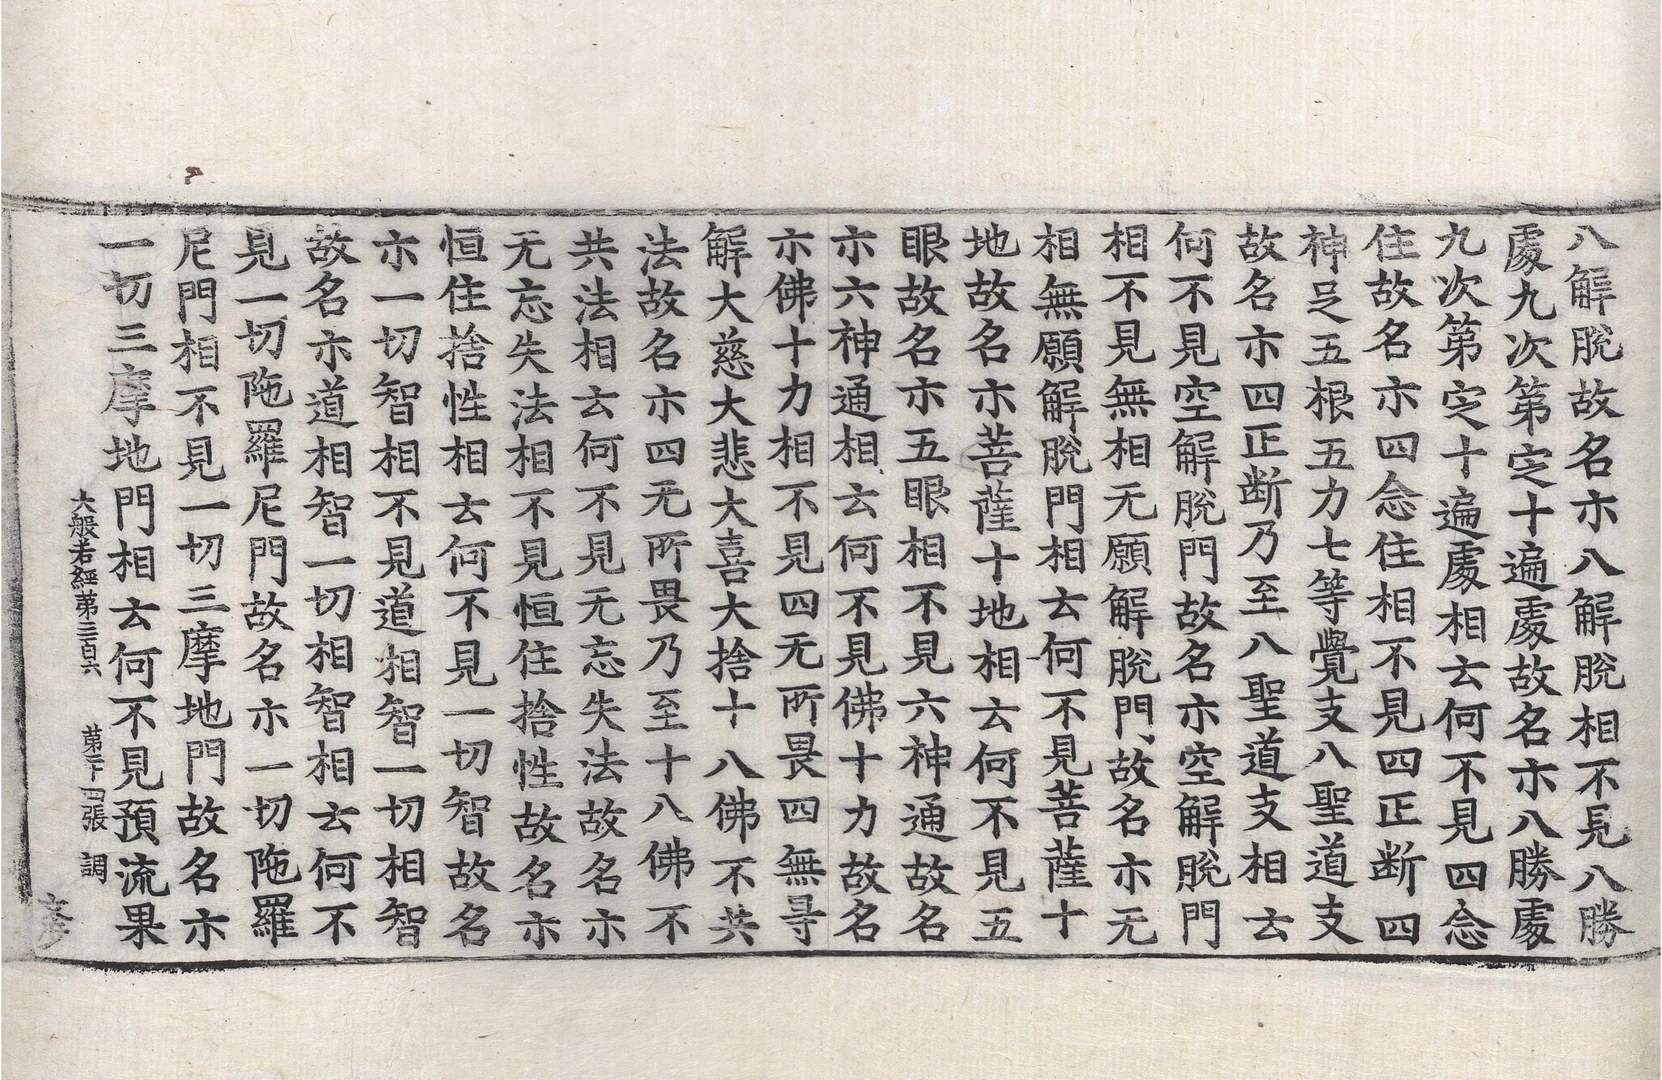 八解脫故名亦八解脫相不見八勝
處九次第定十遍處故名亦八勝處
九次第定十遍處相云何不見四念
住故名亦四念住相不見四正断四
神足五根五力七等覺支八聖道支
故名亦四正断乃至八聖道支相云
何不見空解脫門故名亦空解脫門
相不見無相无願解脫門故名亦无
相無願解脫門相云何不見菩薩十
地故名亦菩薩十地相云何不見五
眼故名亦五眼相不見六神通故名
亦六神通相云何不見佛十力故名
亦佛十力相不見四无所畏四無㝵
解大慈大悲大喜大捨十八佛不共
法故名亦四无所畏乃至十八佛不
共法相云何不見无忘失法故名亦
无忘失法相不見恒住捨性故名亦
恒住捨性相云何不見一切智故名
亦一切智相不見道相智一切相智
故名亦道相智一切相智相云何不
見一切陁羅尼門故名亦一切陁羅
尼門相不見一切三摩地門故名亦
一切三摩地門相云何不見預流果
大般若經第三百六 第二十四張 調